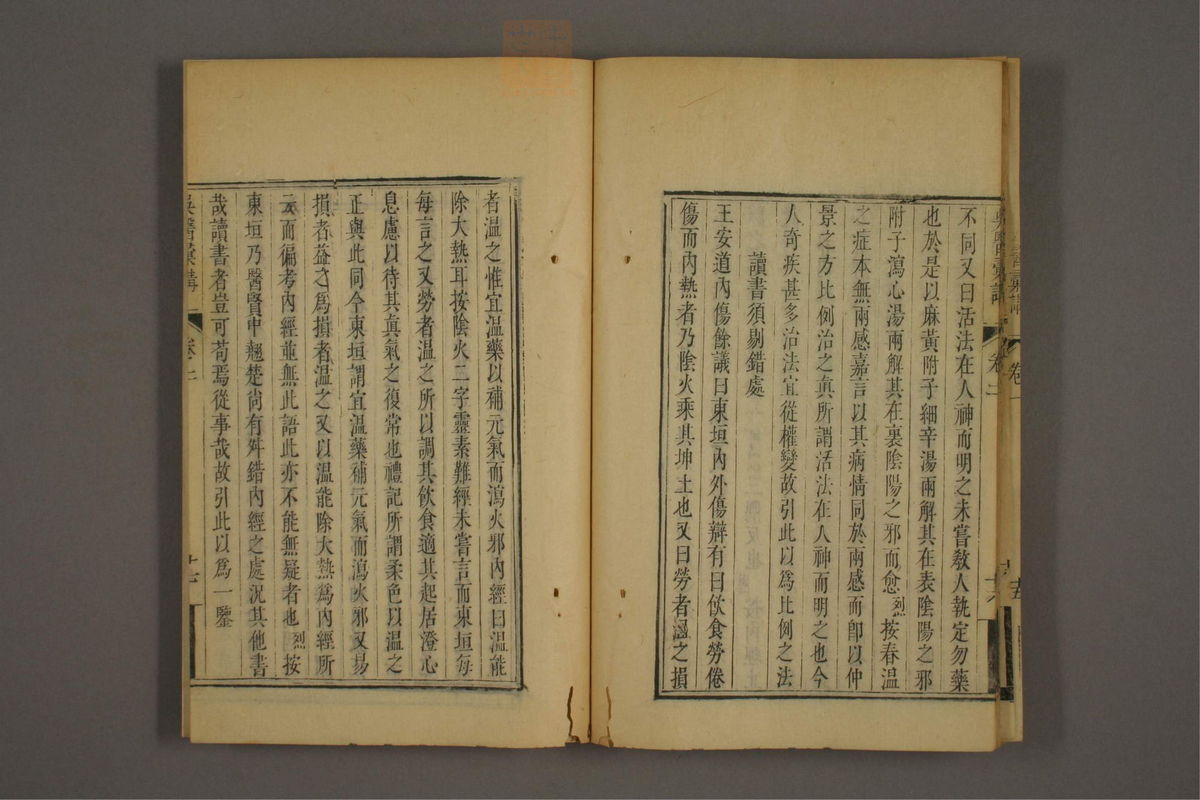 不同又曰活法在人神而明之未嘗敎人執定勿藥
也於是以麻黃附子細辛湯兩解其在表陰陽之邪
附子瀉心湯兩解其在裏陰陽之邪而愈烈按春溫
之症本無兩感嘉言以其病情同於兩感而卽以仲
景之方比例治之眞所謂活法在人神而明之也今
人奇疾甚多治法宜從權變故引此以爲比例之法
讀書須剔錯處
王安道內傷餘議曰東垣內外傷辯有曰飮食勞倦
傷而內熱者乃陰火乘其坤土也又曰勞者溫之損
者溫之惟宜溫藥以補元氣而瀉火邪內經曰溫能
除大熱耳按陰火二字靈素難經未嘗言而東垣每
每言之又勞者溫之所以調其飮食適其起居澄心
息慮以待其眞氣之復常也禮記所謂柔色以溫之
正與此同今東垣謂宜溫藥補元氣而瀉火邪又易
損者益之爲損者溫之又以溫能除大熱爲內經所
云而徧考內經並無此語此亦不能無疑者也烈按
東垣乃醫賢中翹楚尙有舛錯內經之處況其他書
哉讀書者豈可苟焉從事哉故引此以爲一鑒
吳醫彙講
卷二